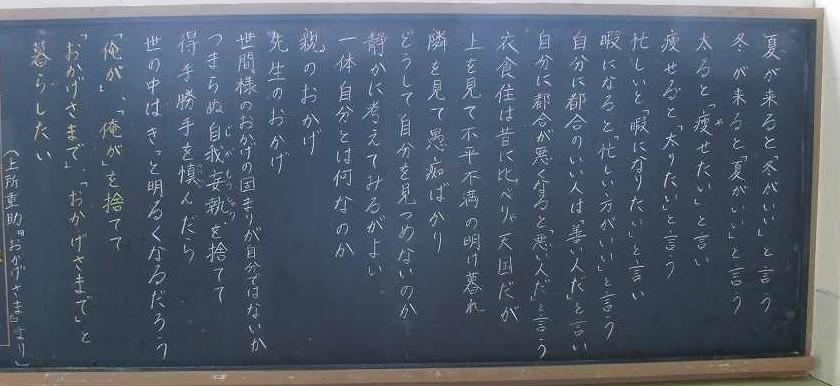 夏が来ると「冬がいい」と言う
冬が来ると「夏がいい」と言う
太ると「痩せたい」と言い
痩せると「太りたい」と言う
忙しいと「暇になりたい」と言い
暇になると「忙しい方がいい」と言う
自分に都合のいい人は「善い人だ」と言い
自分に都合が悪くなると「悪い人だ」と言う
衣食住は昔に比べりゃ天国だが
上を見て不平不満の明け暮れ
隣を見て愚痴ばかり
どうして自分を見つめないのか
静かに考えてみるがよい
一体自分とは何なのか
親のおかげ
先生のおかげ
世間様のおかげの固まりが自分ではないか
つまらぬ自我妄執を捨てて
得手勝手を慎んだら
世の中はきっと明るくなるだろう
「俺が」、「俺が」を捨てて
「おかげさまで」、「おかげさまで」と
暮らしたい
(上所重助『おかげさま』より)